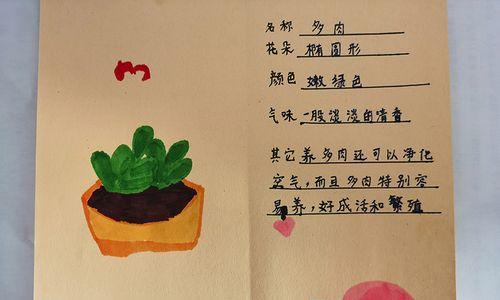 名称 多肉
花朵 椭圆形
颜色 嫩绿色
气味 一股淡淡的清香
其它 养多肉还可以净化
空气，而且多肉特别容
易养，好成活和繁殖